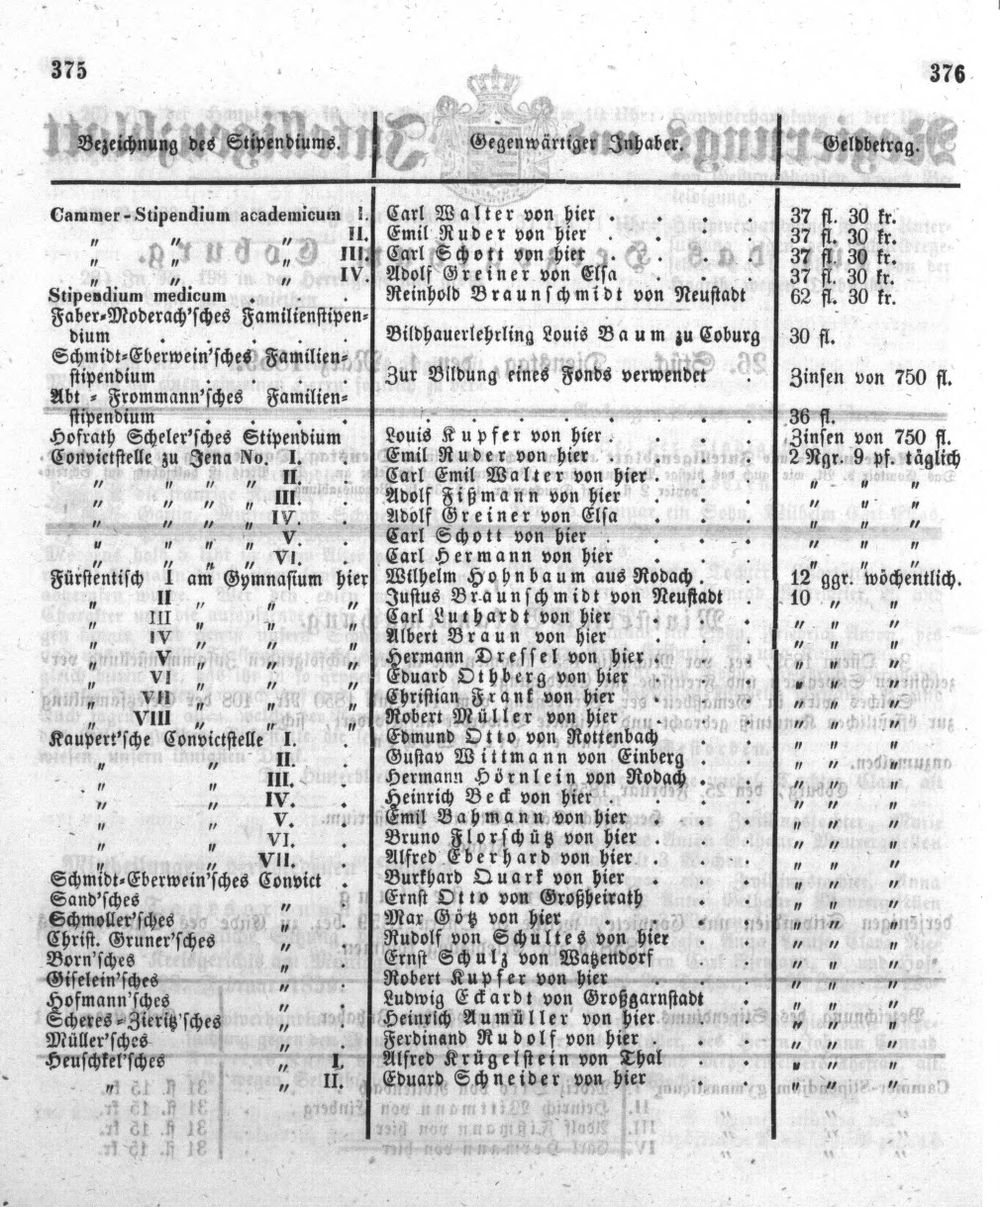 375
376
Bezeichnung des Stipendiums. Gegenwärtiger Inhaber. Geldbetrag.
Cammer-Stipendium academicum I. Carl Walter von hier . . . . 37 fl. 30 kr.
„ „ „ II. Emil Ruder von hier . . . . 37 fl. 30 kr.
„ „ „ III. Carl Schott von hier . . . . 37 fl. 30 kr.
„ „ „ IV. Adolf Greiner von Elsa . . . . 37 fl. 30 kr.
Stipendium medicum . . . Reinhold Braunschmidt von Neustadt 62 fl. 30 kr.
Faber-Moderach'sches Familienstipen-
dium . . . . . Bildhauerlehrling Louis Baum zu Coburg 30 fl.
Schmidt-Eberwein'sches Familien-
stipendium . . . . Zur Bildung eines Fonds verwendet . Zinsen von 750 fl.
Abt-Frommann'sches Familien-
stipendium . . . . . . . . . . . . 36 fl.
Hofrath Scheler'sches Stipendium Louis Kupfer von hier . . . . Zinsen von 750 fl.
Convictstelle zu Jena No. I. . Emil Ruder von hier . . . . 2 Ngr. 9 pf. täglich
„ „ „ „ II. . Carl Emil Walter von hier . . . „ „ „
„ „ „ „ III. . Adolf Fißmann von hier . . . „ „ „
„ „ „ „ IV. . Adolf Greiner von Elsa . . . „ „ „
„ „ „ „ V. . Carl Schott von hier . . . . „ „ „
„ „ „ „ VI. . Carl Hermann von hier . . . „ „ „
Fürstentisch I am Gymnasium hier Wilhelm Hohnbaum aus Rodach . . 12 ggr. wöchentlich.
„ II „ „ „ Justus Braunschmidt von Neustadt . 10 „ „
„ III „ „ „ Carl Luthardt von hier . . . „ „ „
„ IV „ „ „ Albert Braun von hier . . . „ „ „
„ V „ „ „ Hermann Dressel von hier . . „ „ „
„ VI „ „ „ Eduard Othberg von hier . . . „ „ „
„ VII „ „ „ Christian Frank von hier . . . „ „ „
„ VIII „ „ „ Robert Müller von hier . . . „ „ „
Kaupert'sche Convictstelle I. . Edmund Otto von Rottenbach . . „ „ „
„ „ II. . Gustav Wittmann von Einberg . . „ „ „
„ „ III. . Hermann Hörnlein von Rodach . . „ „ „
„ „ IV. . Heinrich Beck von hier . . . „ „ „
„ „ V. . Emil Bahmann von hier . . . „ „ „
„ „ VI. . Bruno Florschütz von hier . . . „ „ „
„ „ VII. . Alfred Eberhard von hier . . . „ „ „
Schmidt-Eberwein'sches Convict . Burkhard Quark von hier . . . „ „ „
Sand'sches „ Ernst Otto von Großheirath . . „ „ „
Schmoller'sches „ Max Götz von hier . . . . „ „ „
Christ. Gruner'sches „ Rudolf von Schultes von hier . . „ „ „
Born'sches „ Ernst Schulz von Watzendorf . . „ „ „
Giselein'sches „ Robert Kupfer von hier . . . „ „ „
Hofmann'sches „ Ludwig Eckardt von Großgarnstadt . „ „ „
Scheres-Zieritz'sches „ Heinrich Aumüller von hier . . „ „ „
Müller'sches „ Ferdinand Rudolf von hier . . „ „ „
Heuschkel'sches „ I. Alfred Krügelstein von Thal . . „ „ „
„ „ II. Eduard Schneider von hier . . „ „ „